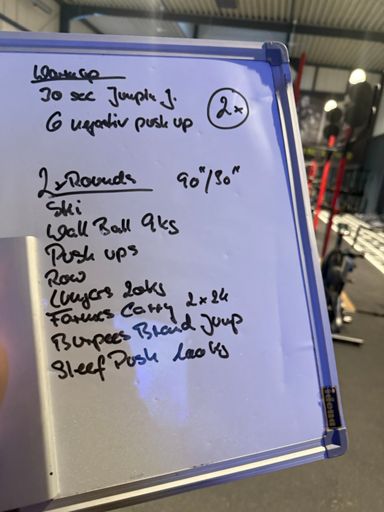 Warmup
30 sec Jumpin J.
6 negativ push up
2x
2x Rounds 90"/30"
Ski
Wall Ball 9kg
Push ups
Row
Lunges 20kg
Farmers Carry 2x24
Burpees Broad Jump
Sleef Push 100kg